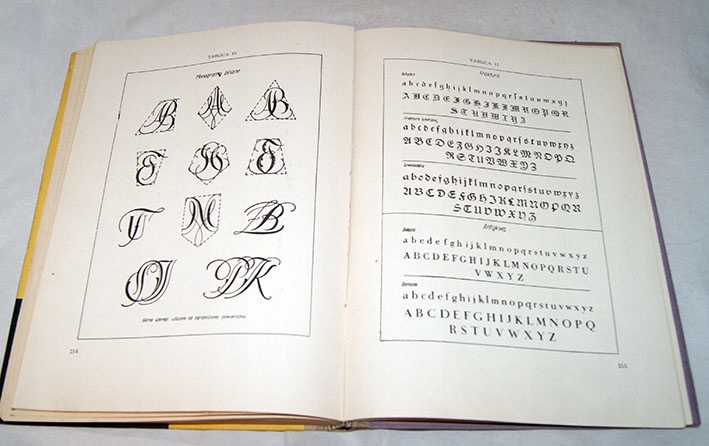 TABLICA 10
Monogramy pisane
AB
M
AB
T
B
TF
M
ZB
OJ
PK
214
TABLICA 11
Fraktura
abcdefghijklmnopqrſstuvwxyz
ABCDEFGHIJKLMNOPQR
STUVWXYZ
abcdefghijklmnopqrſstuvwxyz
ABCDEFGHIJKLMNOPQ
RSTUVWXYZ
abcdefghijklmnopqrſstuvwxyz
ABCDEFGHIJKLMNOPQR
STUVWXYZ
Antykwa
abcdefghijklmnopqrstuvwxyz
ABCDEFGHIJKLMNOPQRSTU
VWXYZ
abcdefghijklmnopqrstuvwxyz
ABCDEFGHIJKLMNOPQ
RSTUVWXYZ